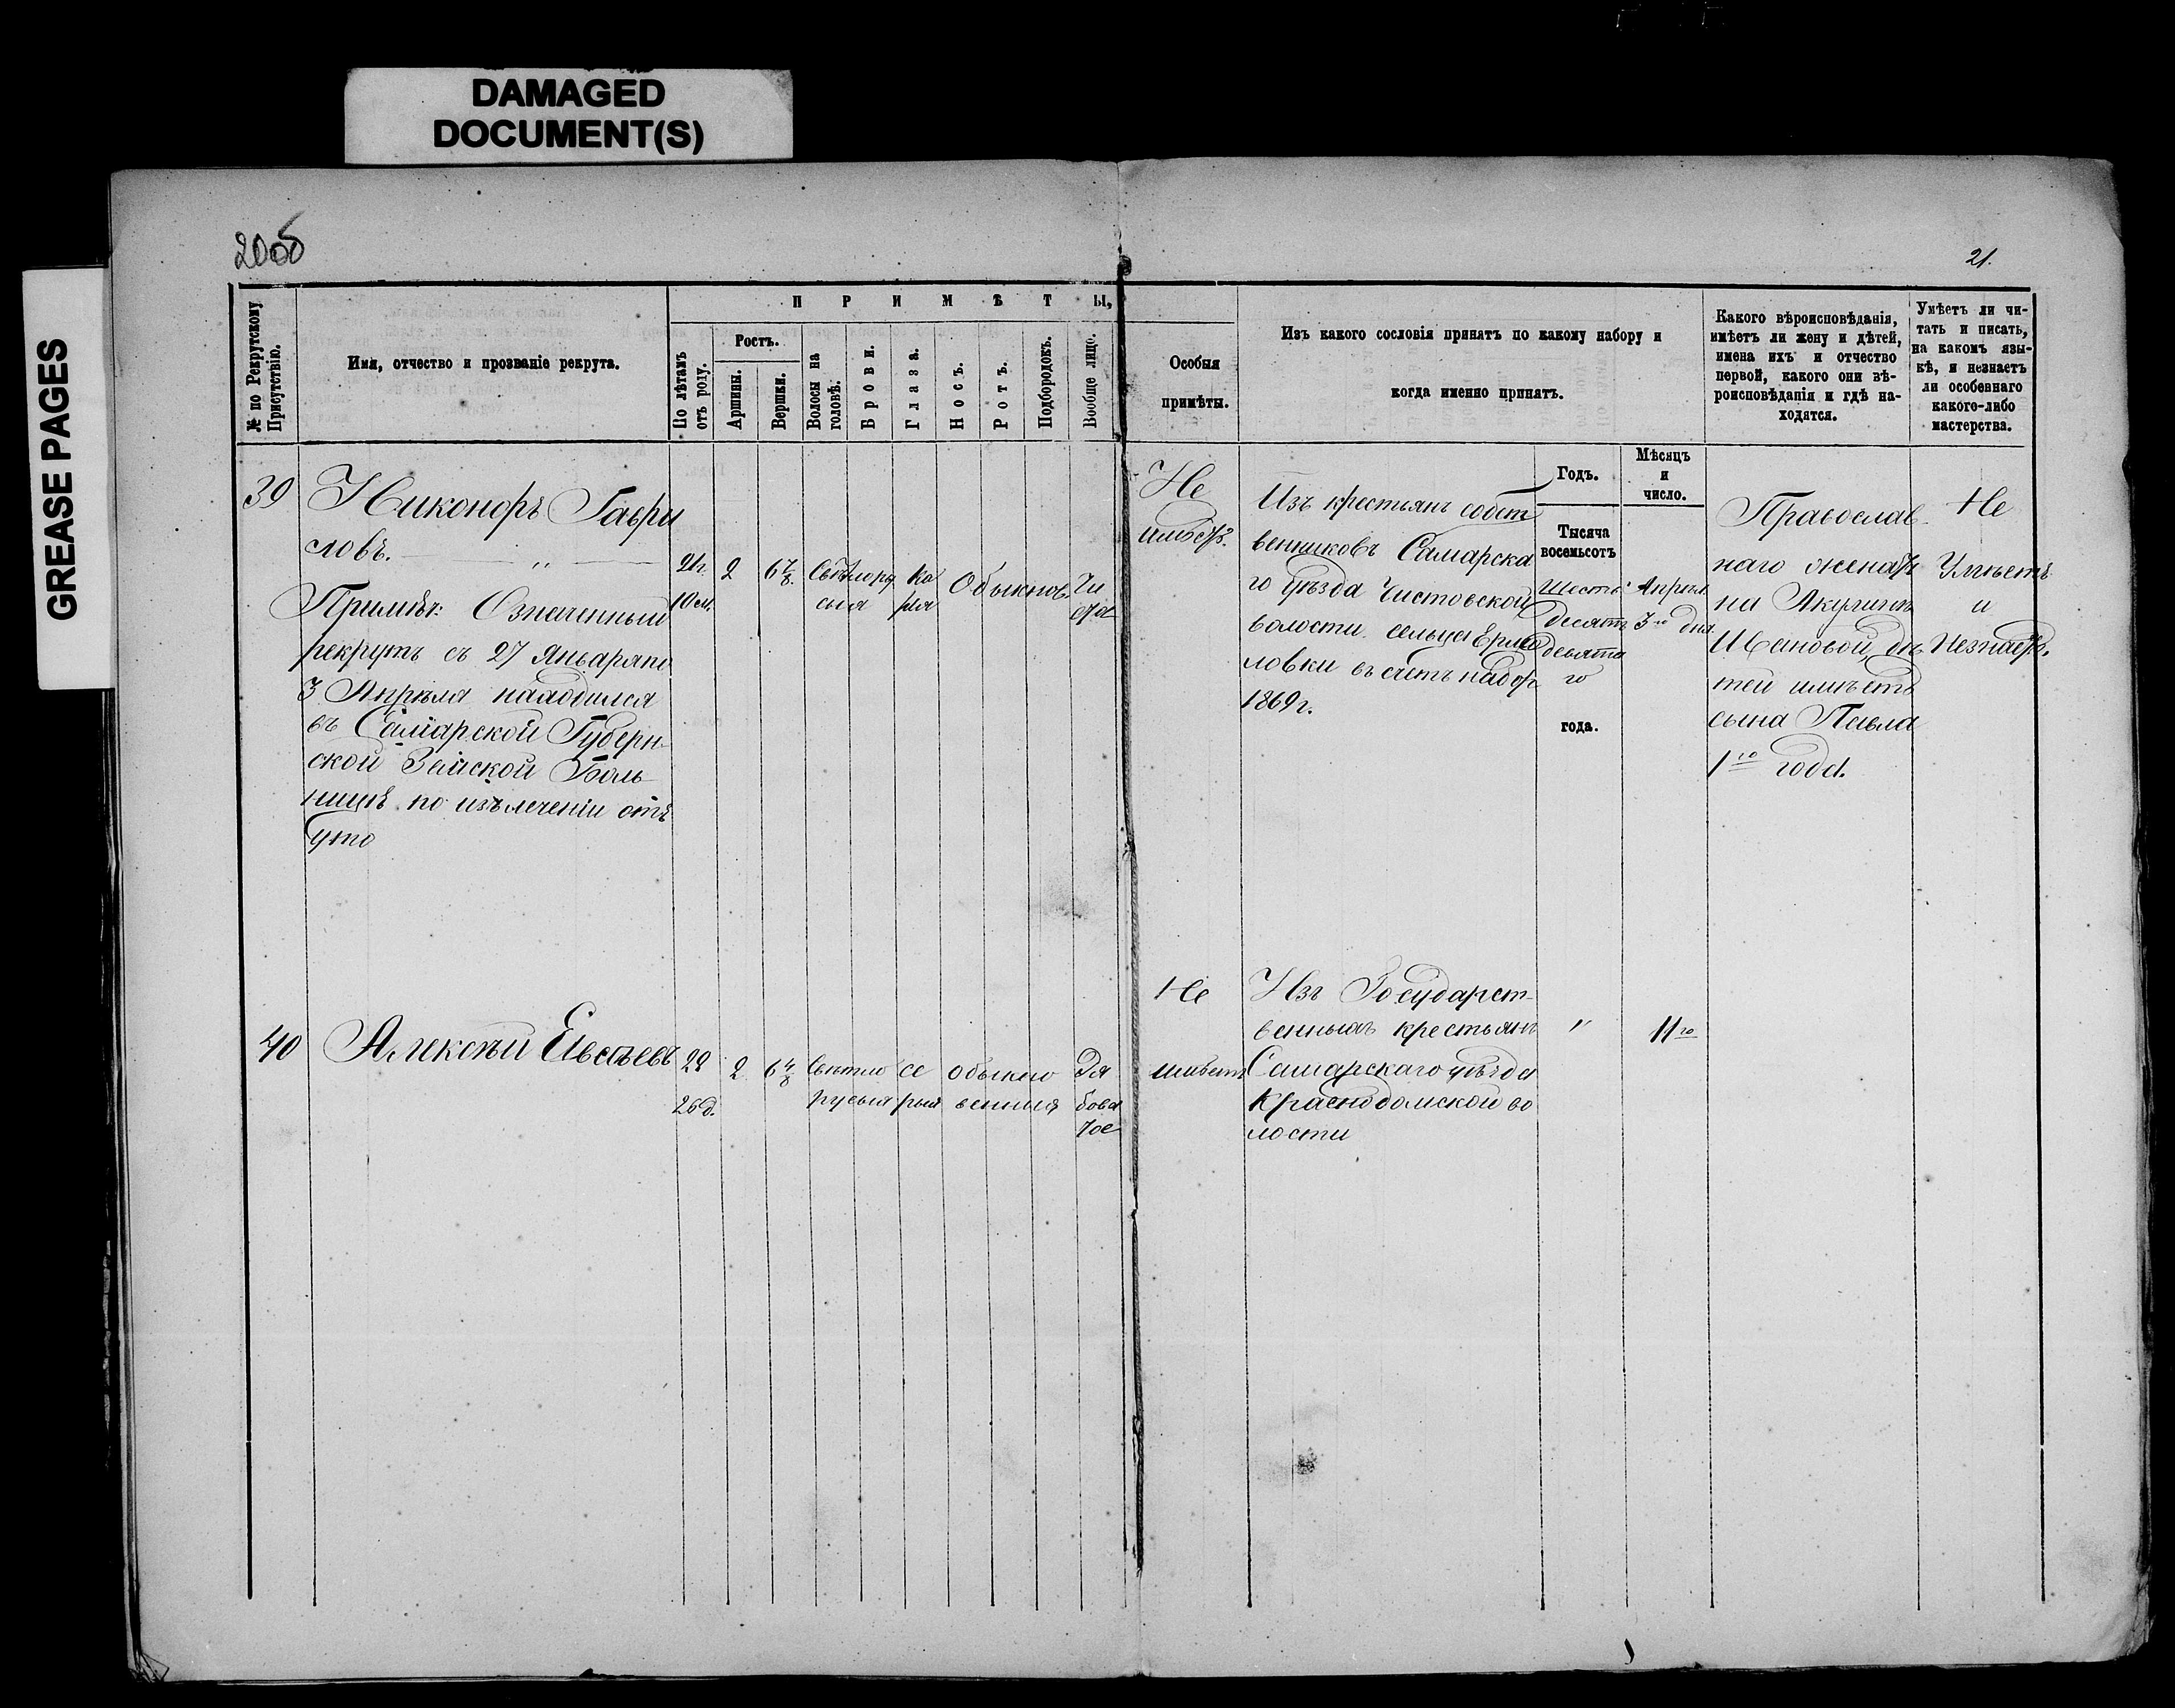 DAMAGED
DOCUMENT(S)
GREASE PAGES
20об
21.
№ по Рекрутскому
Присутствію.
Имя, отчество и прозваніе рекрута.
ПРИМѢТЫ,
По лѣтамъ
отъ роду.
Ростъ.
Аршины.
Вершки.
Волосы на
головѣ.
Брови.
Глаза.
Носъ.
Ротъ.
Подбородокъ.
Вообще лицо.
Особыя
примѣты.
Изъ какого сословія принятъ по какому набору и
когда именно принятъ.
Какого вѣроисповѣданія,
имѣетъ ли жену и дѣтей,
имена ихъ и отчество
первой, какого они вѣ-
роисповѣданія и гдѣ на-
ходятся.
Умѣетъ ли чи-
тать и писать,
на какомъ язы-
кѣ, и незнаетъ
ли особеннаго
какого-либо
мастерства.
39
Никоноръ Гаври
ловъ.
Примѣч: Означенный
рекрутъ съ 27 Января по
3 Апрѣля находился
въ Самарской Губерн-
ской Земской Боль
ницѣ по излеченіи отъ
уто
21г.
10 м.
2
6⅞
Свѣтлору
сыя
ка
рія
Обыкнов.
Чи
стое
Не
имѣетъ.
Изъ крестьянъ собст
венниковъ Самарска
го уѣзда Чистовской
волости сельца Ермо
ловки въ счетъ набора
1869 г.
Годъ.
Тысяча
восемьсотъ
Шесть
десятъ
девята
го
года.
Мѣсяцъ
и
число.
Апрѣля
3го дня.
Православ-
наго женатъ
на Акулинѣ
Ивановой, дѣ
тей имѣетъ
сына Павла
1го года.
Не
Умѣетъ
и
Незнаетъ.
40
Алексѣй Евсѣевъ
28
26 д.
2
6 4/8
Свѣтло
русыя
се
рыя
обыкно
венныя
Ря
бова
тое
Не
имѣетъ
Изъ Государст-
венныхъ крестьянъ
Самарскаго уѣзда
Краснодомской во
лости
"
11го